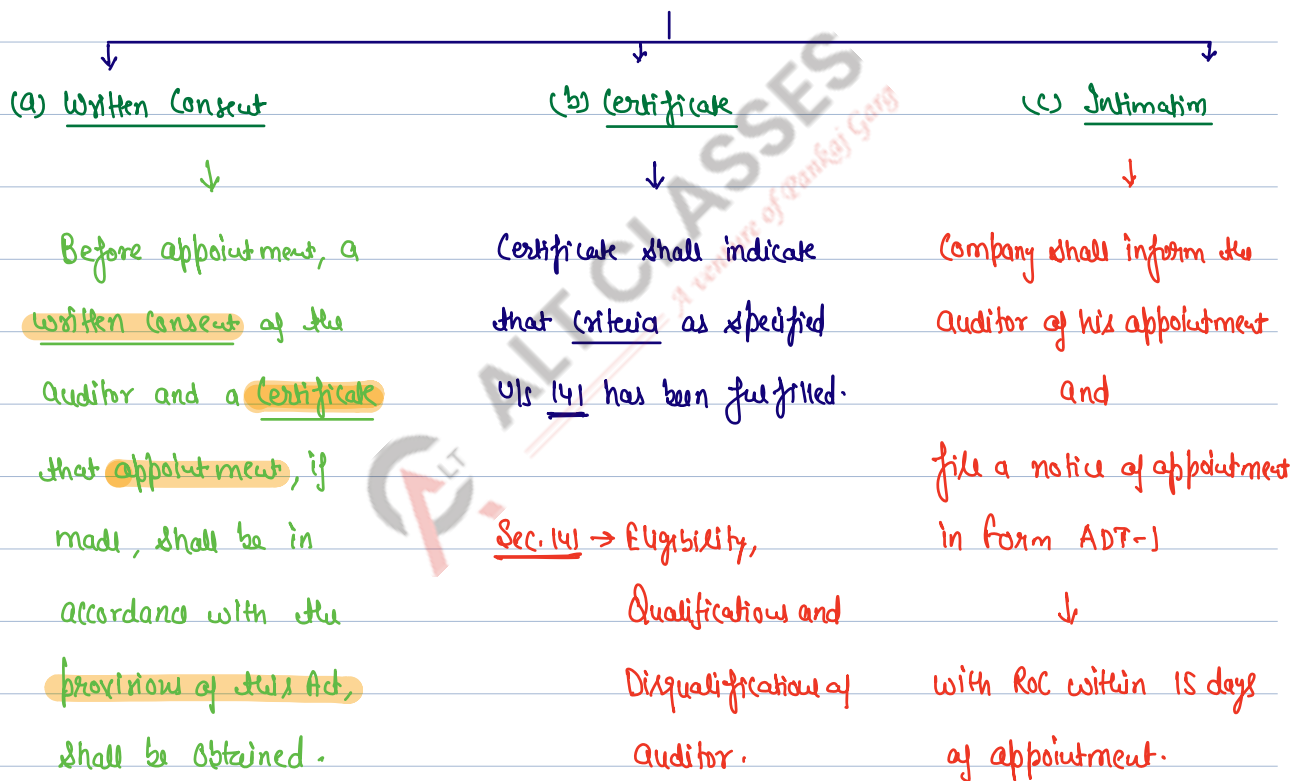 (a) Written Consent
Before appointment, a
written consent of the
auditor and a certificate
that appointment, if
made, shall be in
accordance with the
provisions of this Act,
shall be obtained.
(b) Certificate
Certificate shall indicate
that criteria as specified
u/s 141 has been fulfilled.
Sec. 141 → Eligibility,
Qualifications and
Disqualifications of
auditor.
(c) Intimation
Company shall inform the
auditor of his appointment
and
file a notice of appointment
in form ADT-1
with RoC within 15 days
of appointment.
ALT CLASSES
A venture of Pankaj Garg
ALT